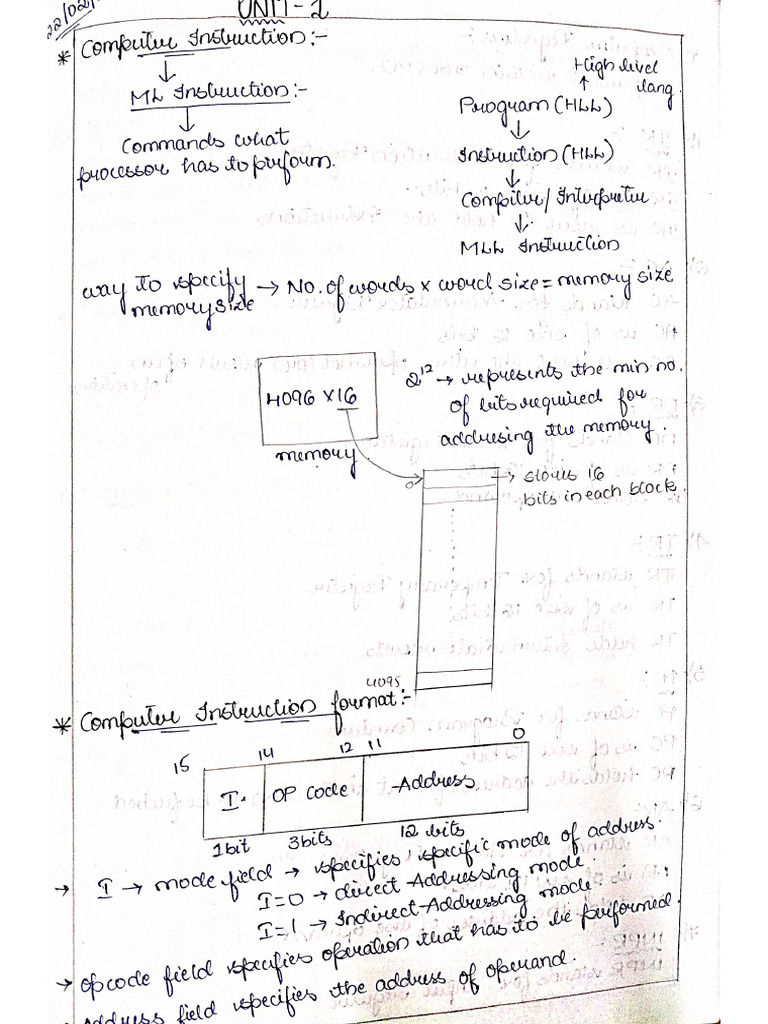 22/02/
UNIT-2
* Computer Instruction:-
ML Instruction:-
Commands what
processor has to perform.
High level
lang.
Program (HLL)
Instruction (HLL)
Compiler/Interpreter
MLL Instruction
way to specify
memory size → No. of words × word size = memory size
4096 × 16
memory
2¹² → represents the min no.
of bits required for
addressing the memory.
0
→ stores 16
bits in each block.
4095
* Computer Instruction format:-
15 14 12 11 0
I. OP Code Address
1bit 3bits 12 bits
→ I → mode field → specifies specific mode of address.
I=0 → direct Addressing mode.
I=1 → Indirect Addressing mode.
→ Opcode field specifies operation that has to be performed.
Address field specifies the address of operand.